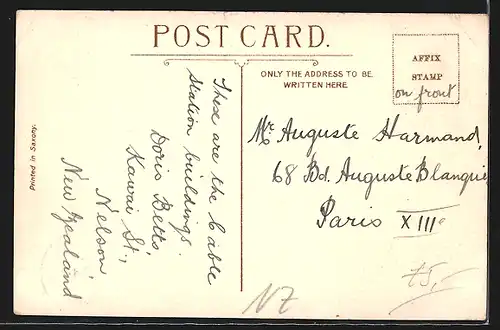 POST CARD.
ONLY THE ADDRESS TO BE
WRITTEN HERE
AFFIX
STAMP
on front
Printed in Saxony.
These are the Cable
Station buildings.
Doris Betts,
Kawai St.,
Nelson,
New Zealand
Mr Auguste Harmand,
68 Bd. Auguste Blanqui
Paris XIIIe
NZ
75,-